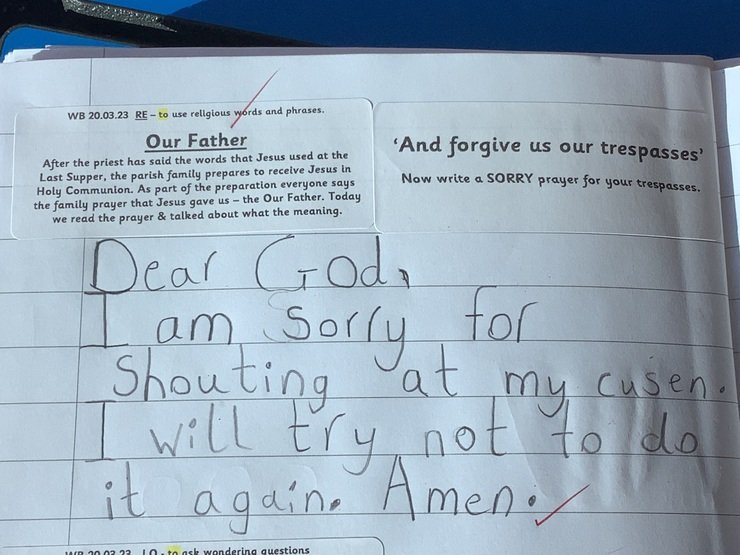 WB 20.03.23 RE – to use religious words and phrases.
Our Father
After the priest has said the words that Jesus used at the
Last Supper, the parish family prepares to receive Jesus in
Holy Communion. As part of the preparation everyone says
the family prayer that Jesus gave us – the Our Father. Today
we read the prayer & talked about what the meaning.
‘And forgive us our trespasses’
Now write a SORRY prayer for your trespasses.
Dear God,
I am sorry for
Shouting at my cusen.
I will try not to do
it again. Amen.
WB 20.03.23 LO - to ask wondering questions